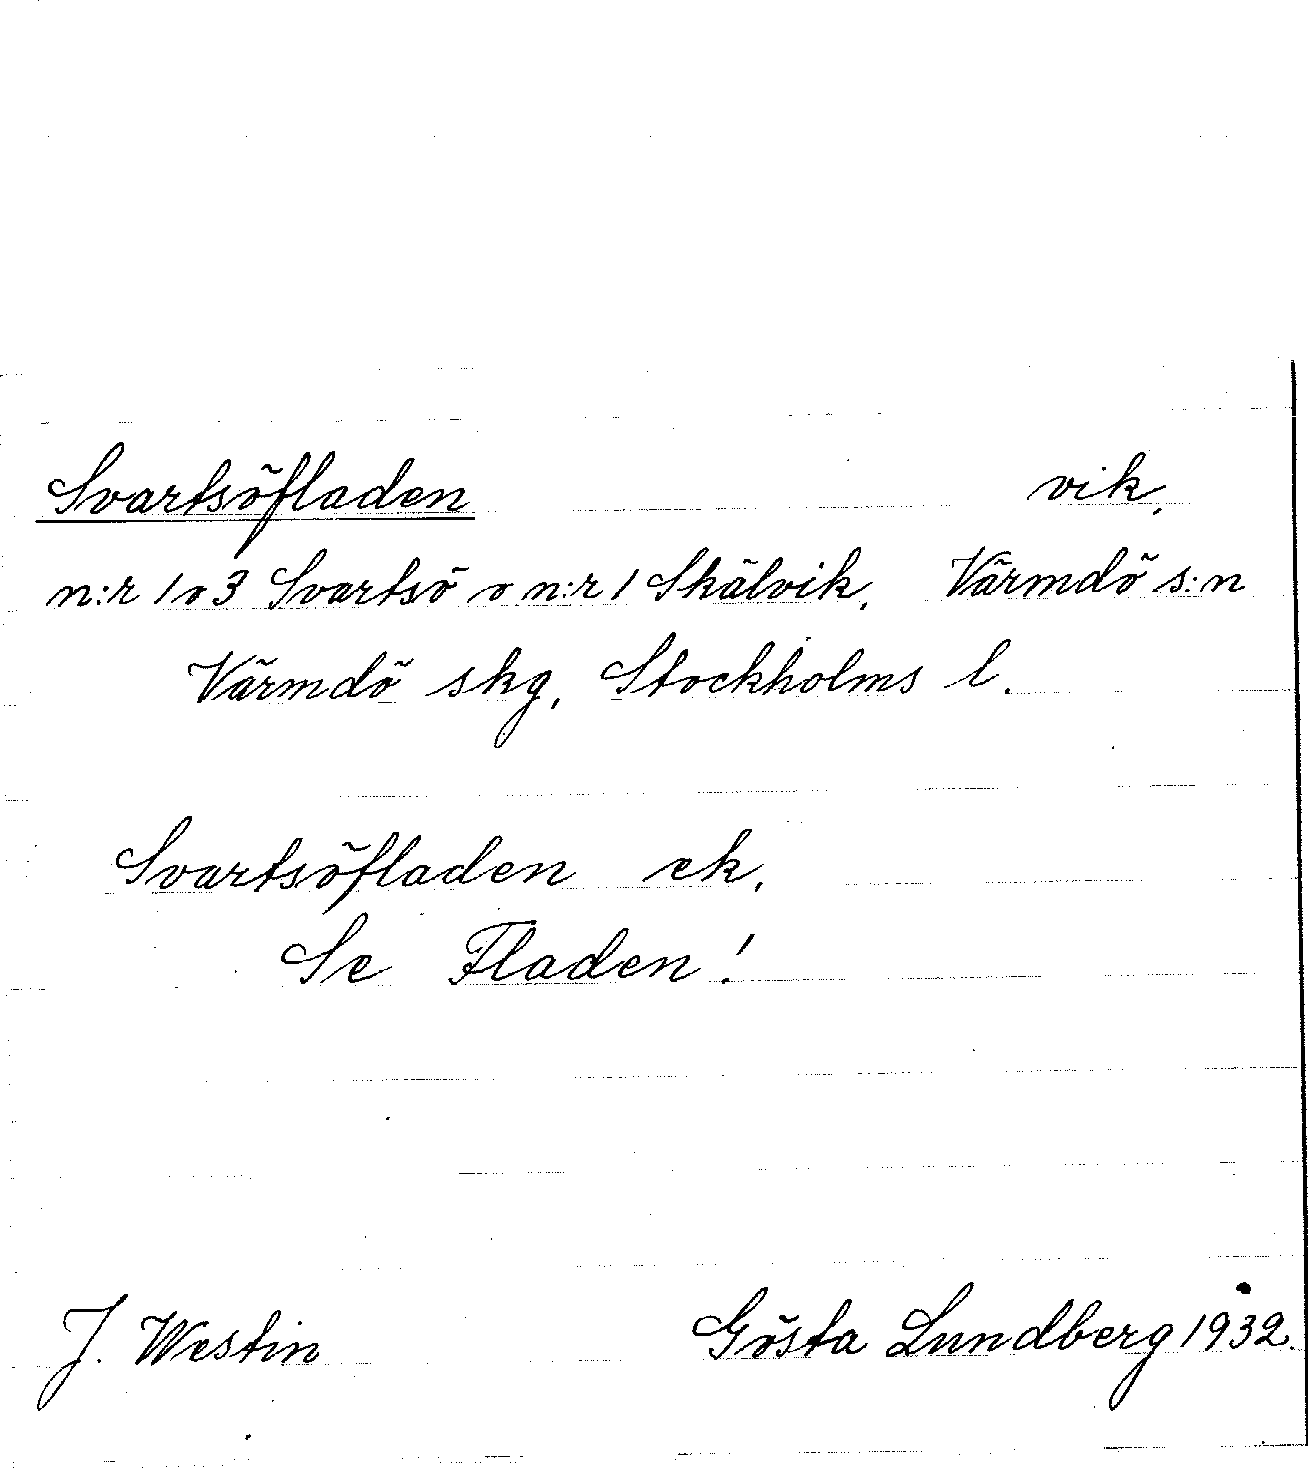 Svartsöfladen vik,
n:r 1 o 3 Svartsö o n:r 1 Skälvik, Värmdö s:n
Värmdö skg, Stockholms l.
Svartsöfladen ek,
Se Fladen!
J. Westin Gösta Lundberg 1932.